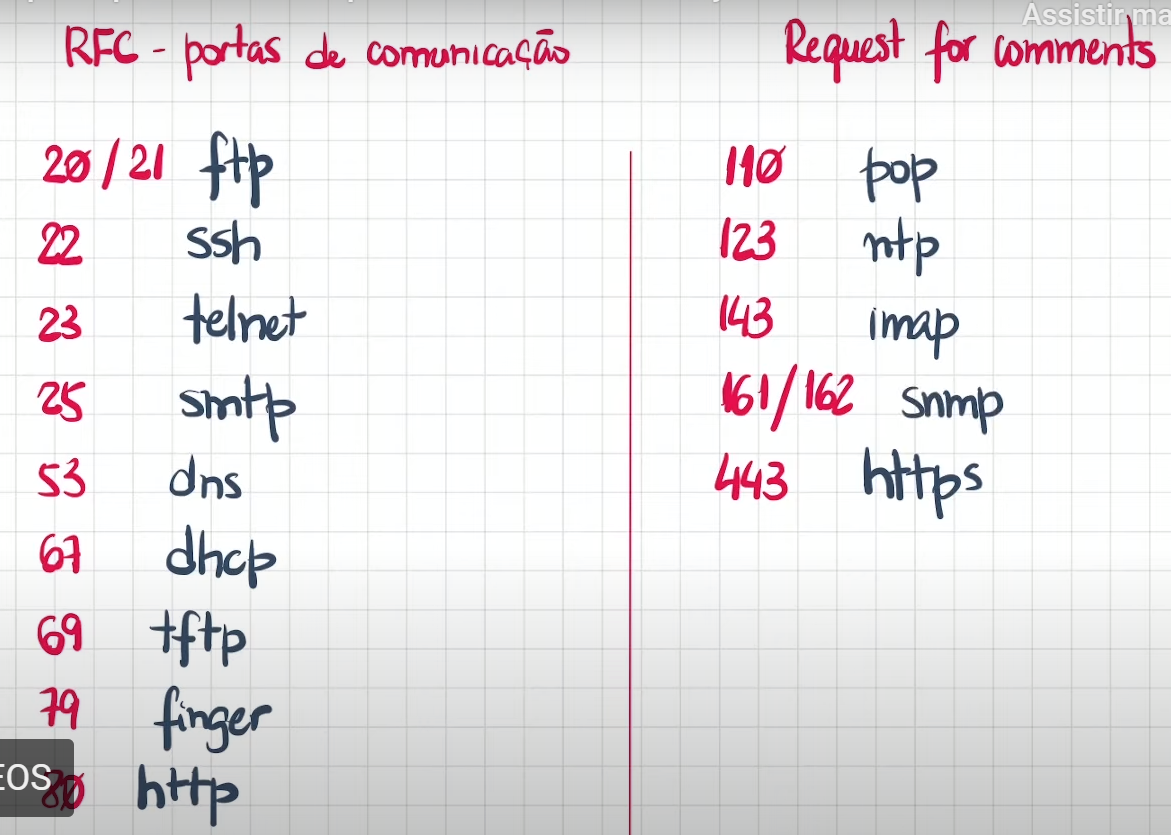 Assistir ma
RFC - portas de comunicação
Request for comments
20/21 ftp
22 ssh
23 telnet
25 smtp
53 dns
67 dhcp
69 tftp
79 finger
80 http
EOS
110 pop
123 ntp
143 imap
161/162 snmp
443 https